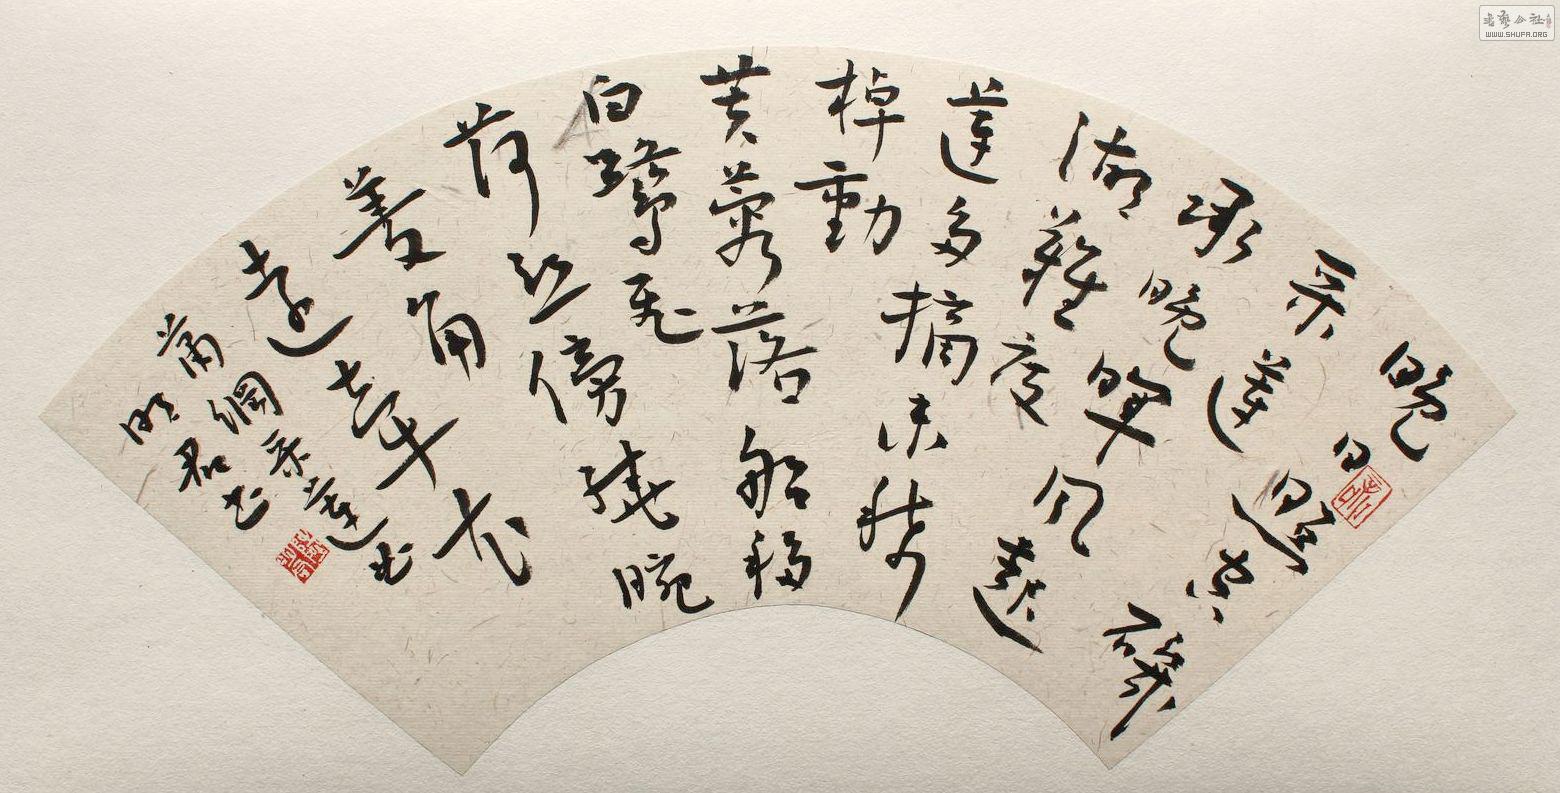 晚日照空磯
采蓮
承晚暉風起
湖難度
蓮多摘未稀
棹動
芙蓉落船移
白鷺飛
荷丝傍繞腕
菱角
遠牽衣
蕭綱采蓮曲
君书
书艺公社
WWW.SHUFA.ORG